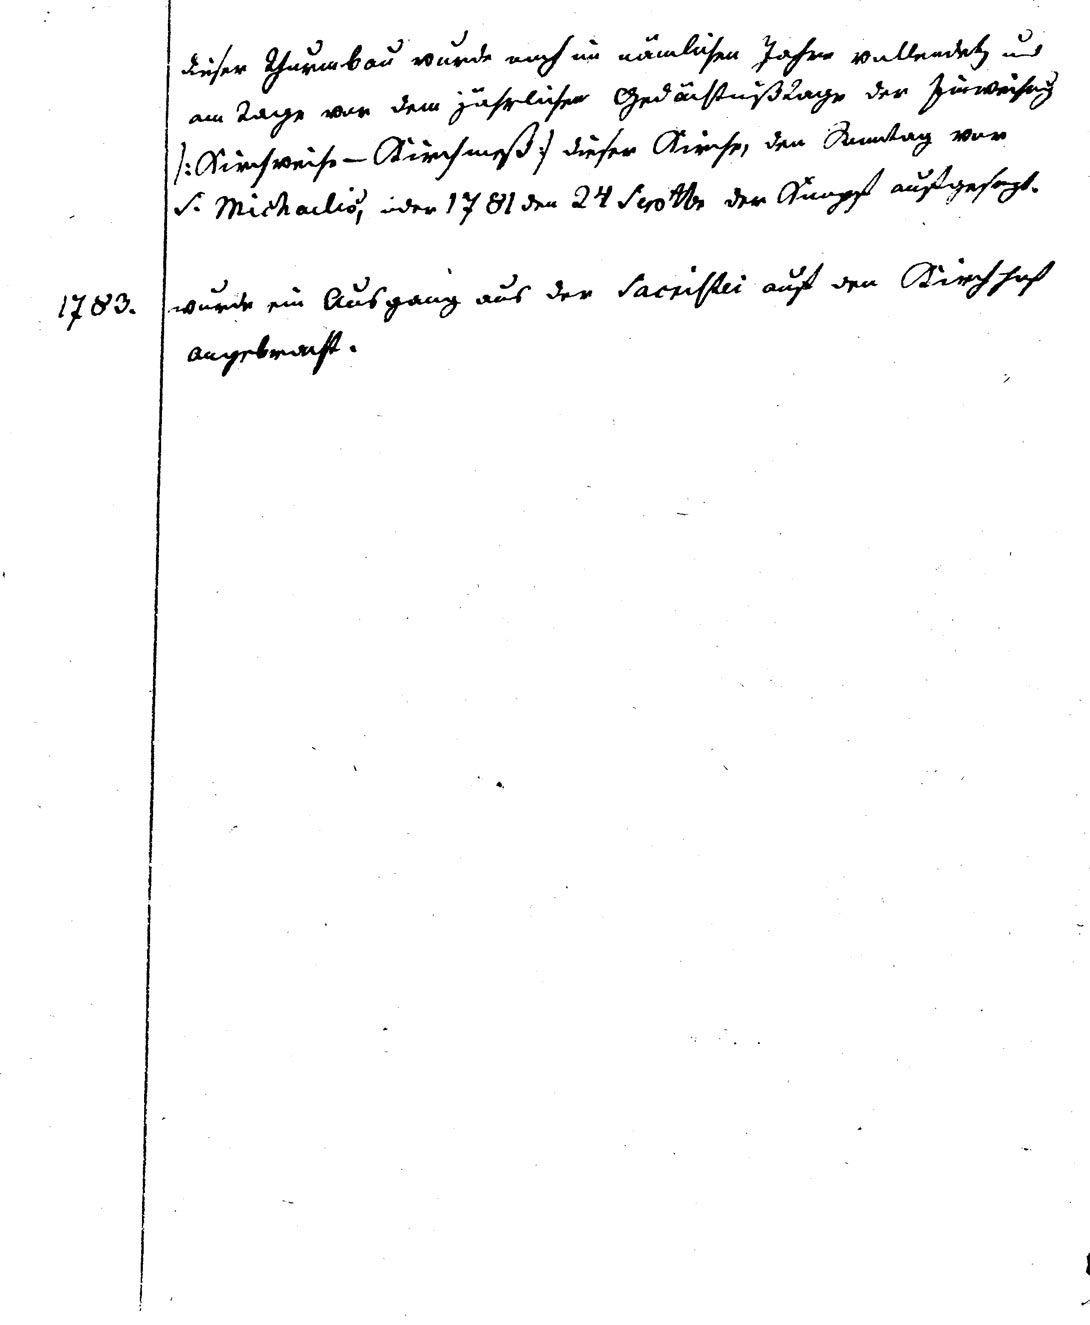 dieser Thurmbau wurde noch im nämlichen Jahre vollendet, und
am Tage vor dem jährlichen Gedächtnißtage der Einweihung
/: Kirchweihe – Kirchmeß :/ dieser Kirche, den Sonntag vor
S. Michaelis, oder 1781 den 24 Septbr der Knopf aufgesezt.
1783. wurde ein Ausgang aus der Sacristei auf den Kirchhof
angebracht.